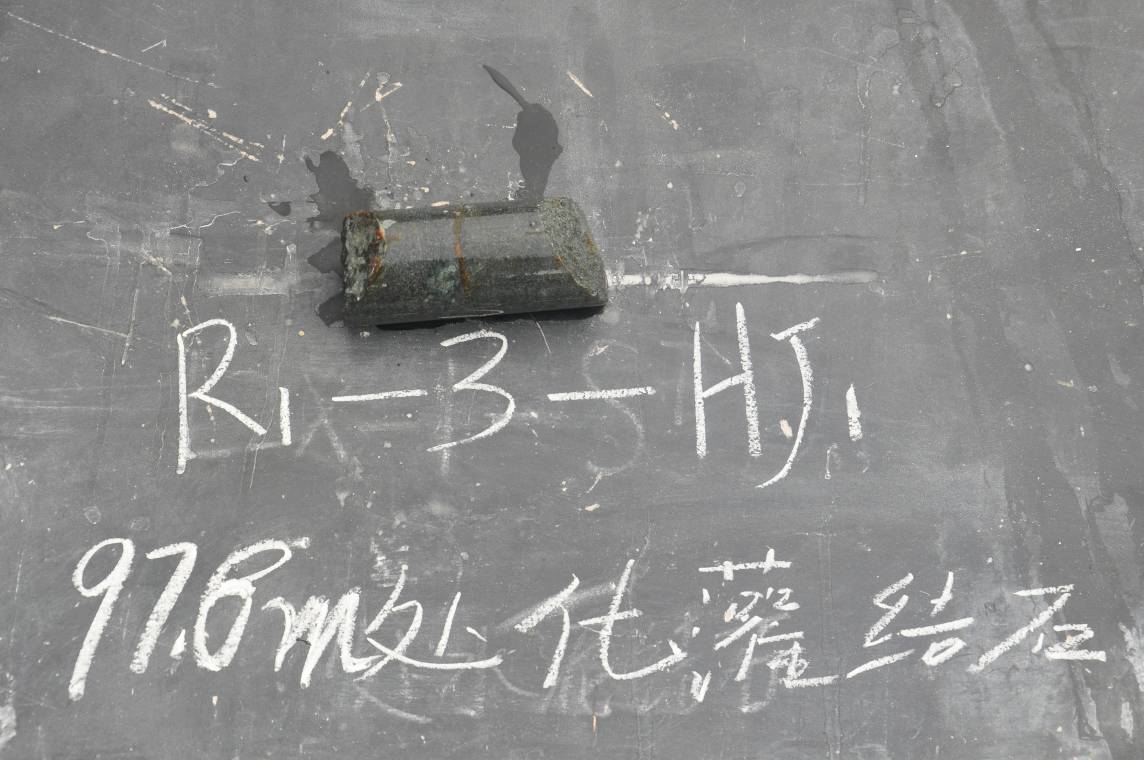 R1-3-HJ1
97.8m处化灌结石